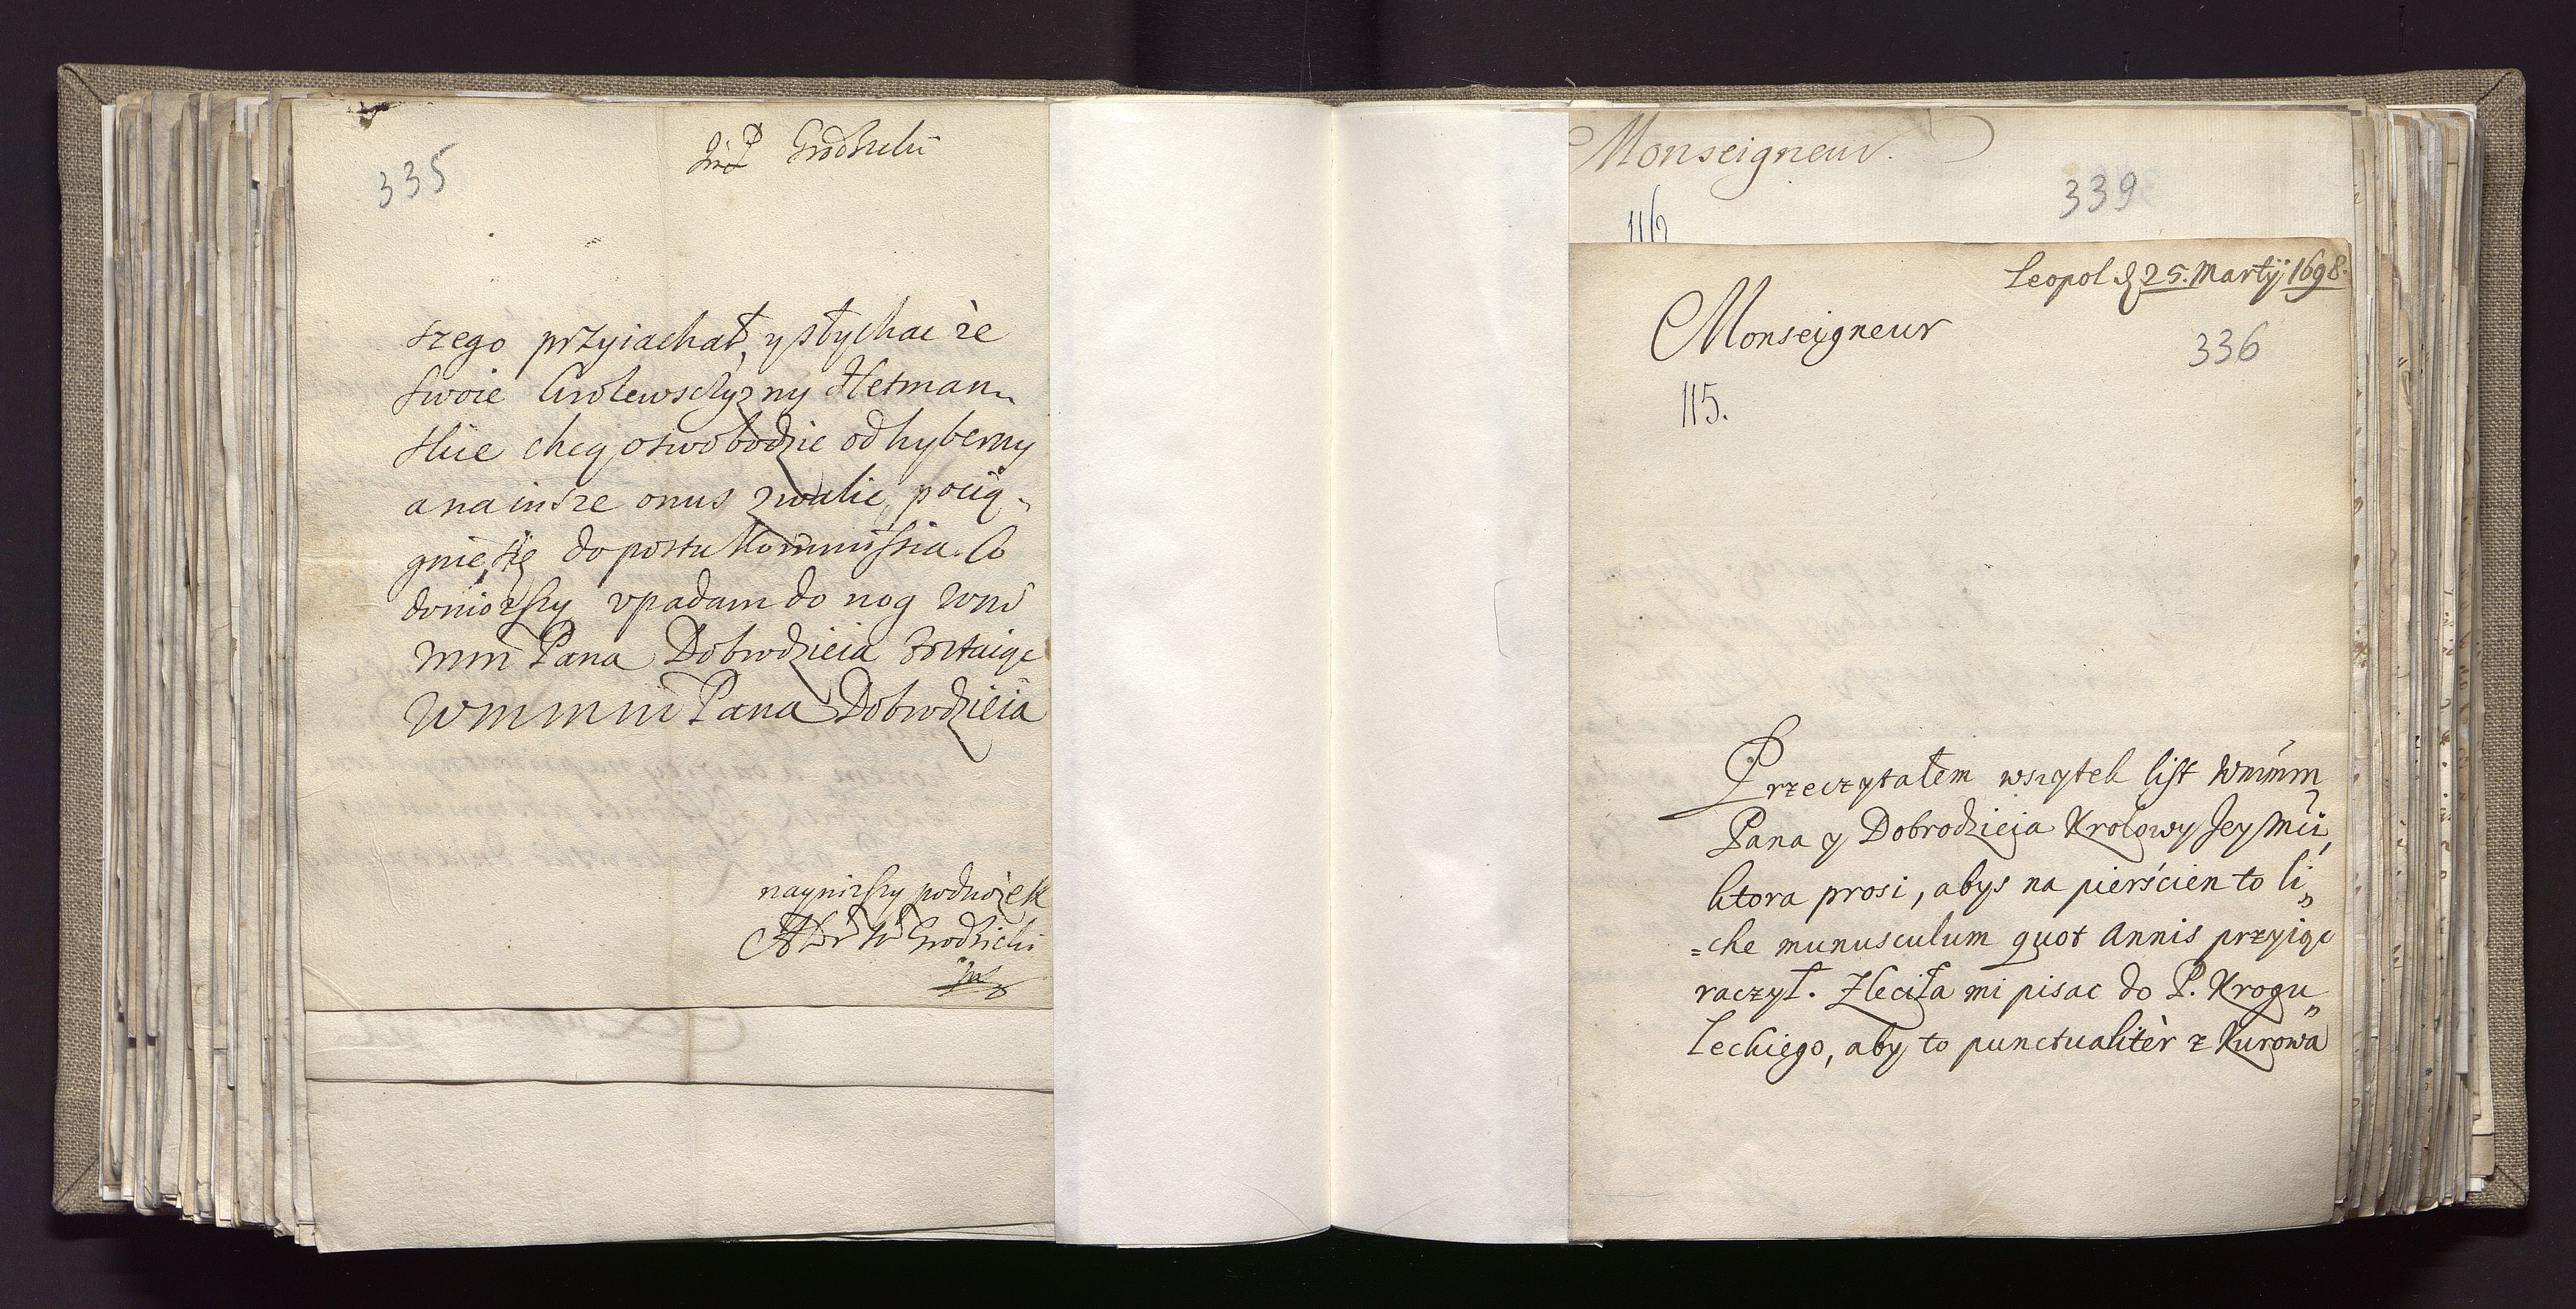 335
Grodzicki
szego przyiachał, y słychac że
swoie Krolewsczyzny Hetman
skie chcą oswobodzic od hyberny
a na insze onus zwalic, pocią-
gnie się do postu Kommissia. Co
doniozszy vpadam do nog Wm̃
mm̃ Pana Dobrodzieia zostaiąc
Wmmm̃ Pana Dobrodzieia
naynizszy podnożek
Grodzicki
Monseigneur.
339
116
Leopol d 25. Martÿ 1698.
Monseigneur
336
115.
Przeczytałem wszytek list Wmm̃m
Pana y Dobrodzieia Krolowy Jey Mci,
ktora prosi, abys na pierścien to li„
=che munusculum quot Annis przyiąc
raczył. Zleciła mi pisac do P. Krogu„
leckiego, aby to punctualitèr z Kurowa